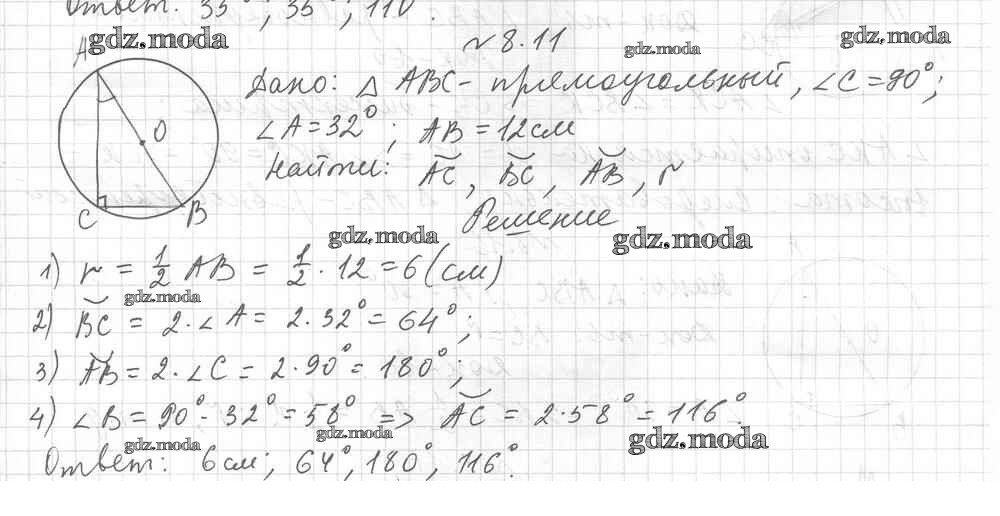 Ответ: 35°; 35°; 110°.
gdz.moda
gdz.moda
gdz.moda
№ 8.11
A
O
C
B
Дано: △ ABC - прямоугольный, ∠C = 90°;
∠A = 32°; AB = 12 см
Найти: ◡AC, ◡BC, ◡AB, r
Решение
gdz.moda
gdz.moda
1) r = 1/2 AB = 1/2 · 12 = 6 (см)
gdz.moda
2) ◡BC = 2·∠A = 2·32° = 64°;
3) ◡AB = 2·∠C = 2·90° = 180°;
4) ∠B = 90° - 32° = 58° => ◡AC = 2·58° = 116°.
gdz.moda
gdz.moda
gdz.moda
Ответ: 6 см; 64°, 180°, 116°.